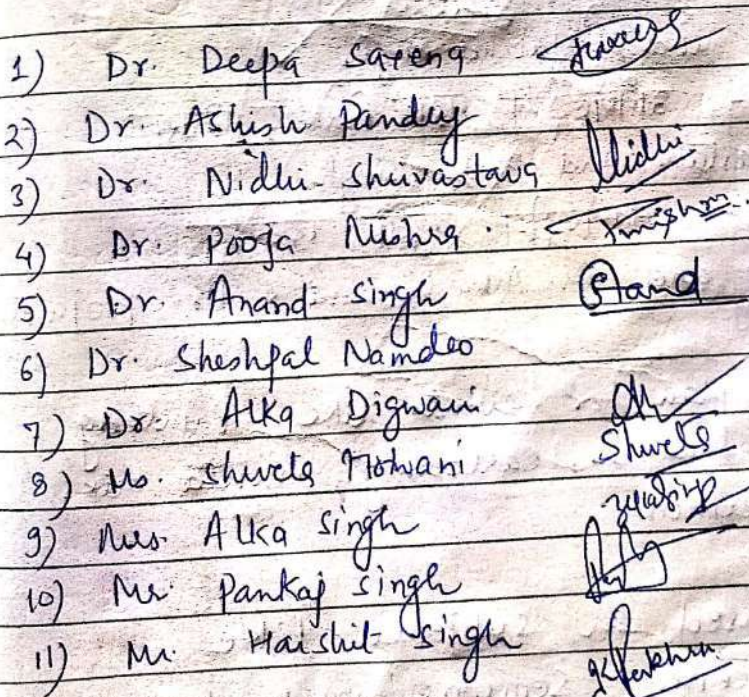 1) Dr. Deepa Saxena
2) Dr. Ashish Pandey
3) Dr. Nidhi Shrivastava Nidhi
4) Dr. Pooja Mishra. Pmishra
5) Dr. Anand Singh Anand
6) Dr. Sheshpal Namdeo
7) Dr. Alka Digwani
8) Ms. Shweta Motwani Shweta
9) Mrs. Alka Singh
10) Mr. Pankaj Singh
11) Mr. Harshit Singh